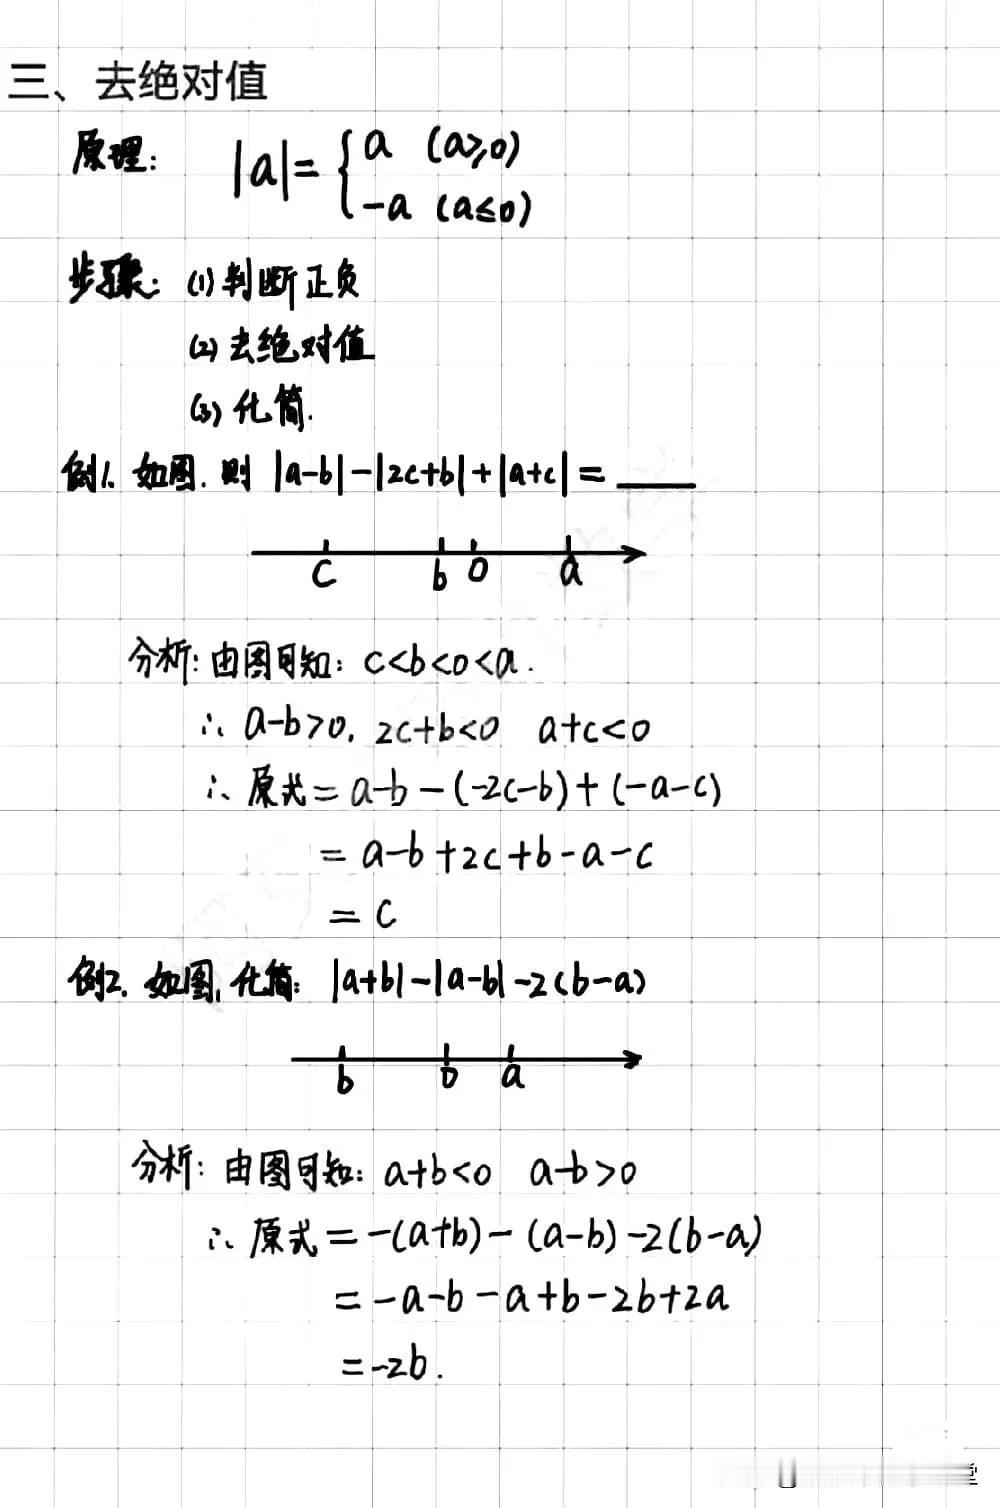 三、去绝对值
原理: |a|={a (a≥0)
-a (a≤0)
步骤: (1) 判断正负
(2) 去绝对值
(3) 化简.
例1. 如图, 则 |a-b|-|2c+b|+|a+c|=____
c b 0 a
分析: 由图可知: c<b<0<a.
∴ a-b>0, 2c+b<0 a+c<0
∴ 原式=a-b-(-2c-b)+(-a-c)
=a-b+2c+b-a-c
=c
例2. 如图, 化简: |a+b|-|a-b|-2(b-a)
b 0 a
分析: 由图可知: a+b<0 a-b>0
∴ 原式=-(a+b)-(a-b)-2(b-a)
=-a-b-a+b-2b+2a
=-2b.